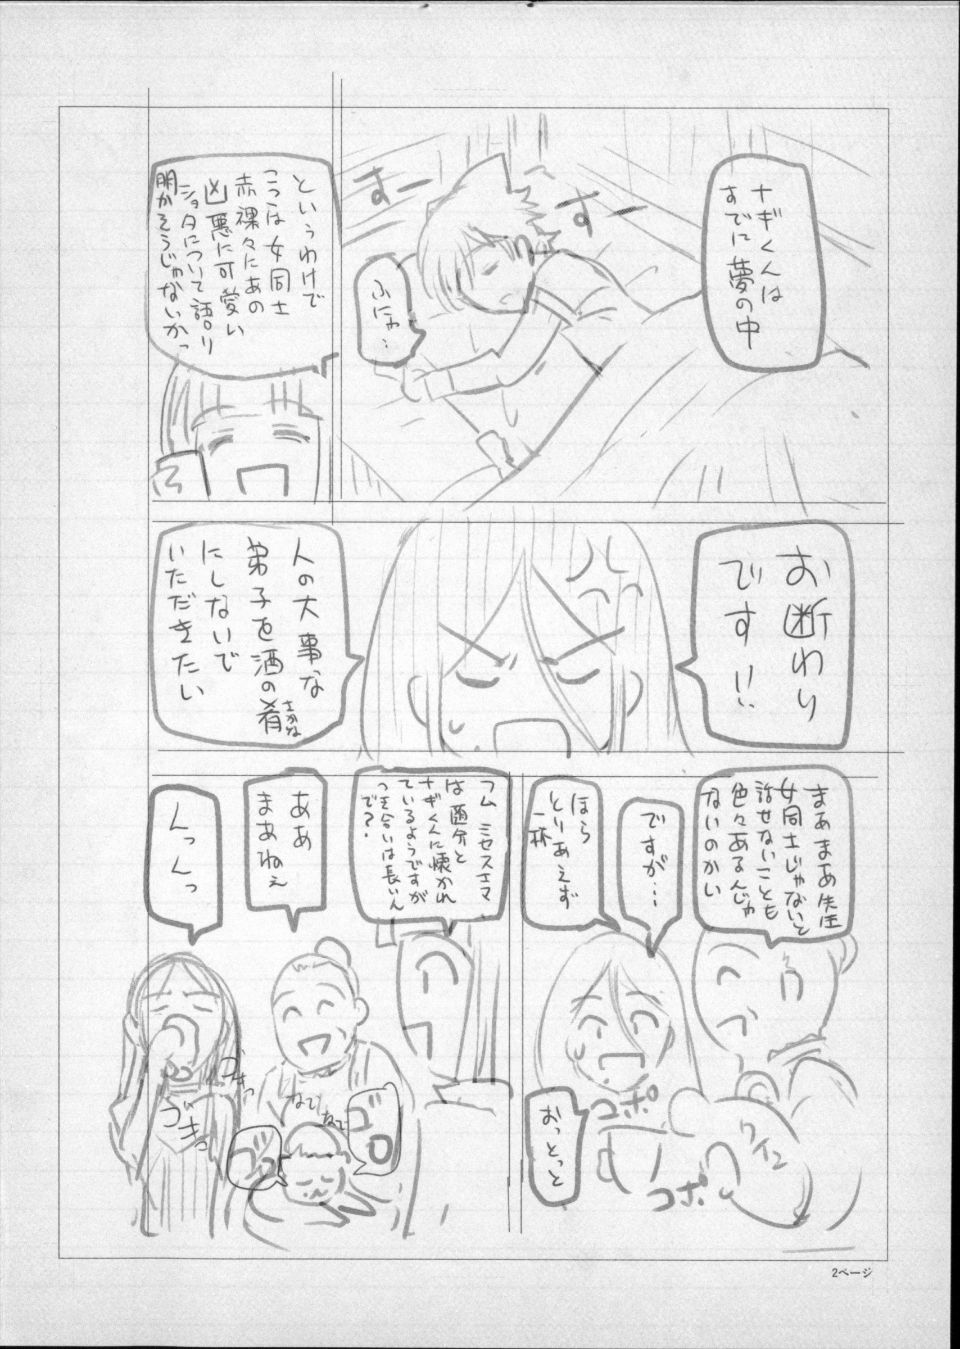 ナギくんは
すでに夢の中
すー
すー
ふにゃ…
というわけで
ここは女同士
赤裸々にあの
凶悪に可愛い
ショタについて語り
明かそうじゃないかっ
お断わり
です!!
人の大事な
弟子を酒の肴
さかな
にしないで
いただきたい
まあまあ先生
女同士じゃないと
話せないことも
色々あるんじゃ
ないのかい
ですが…
ほら
とりあえず
一杯
おっとっと
コポ
コポ
ワイン
フム ミセスエマ
は随分と
ナギくんに懐かれ
ているようですが
つき合いは長いん
で?
ああ
まあねぇ
んっんっ
なで
なで
ゴロ
ゴロ
ングキュッ
2ページ